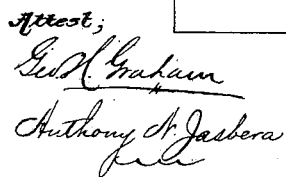 Attest;
Geo H. Graham
Anthony N. Jasbera